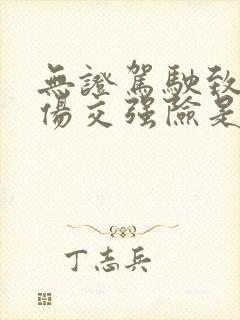 無證駕駛致
傷交强險是
丁志兵